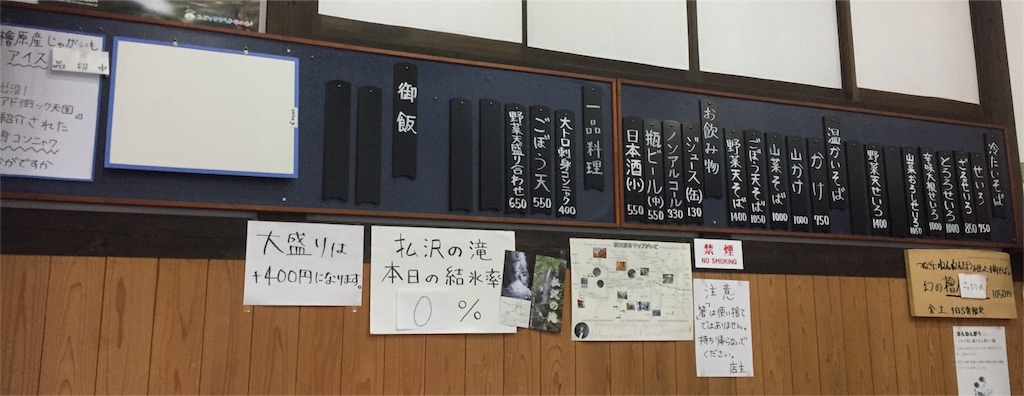 檜原産じゃがいも
アイス
品切中
出没!
アド街ック天国
紹介された
身コンニャク
がですか
御飯
一品料理
大トロ刺身コンニャク 400
ごぼう天 550
野菜天盛り合わせ 650
冷たいそば
せいろ 750
ざるせいろ 850
とろろせいろ 1000
辛味大根せいろ 1000
山菜おろしせいろ 1050
野菜天せいろ 1400
温かいそば
かけ 750
山かけ 1000
山菜そば 1000
ごぼう天そば 1050
野菜天そば 1400
お飲み物
ジュース(缶) 130
ノンアルコール 330
瓶ビール(中) 550
日本酒(小) 550
大盛りは
+400円になります。
払沢の滝
本日の結氷率
0 %
禁煙
NO SMOKING
注意
箸は使い捨て
ではありません。
持ち帰らないで
ください。
店主
幻の檜
1050円
金土 1日5食限定